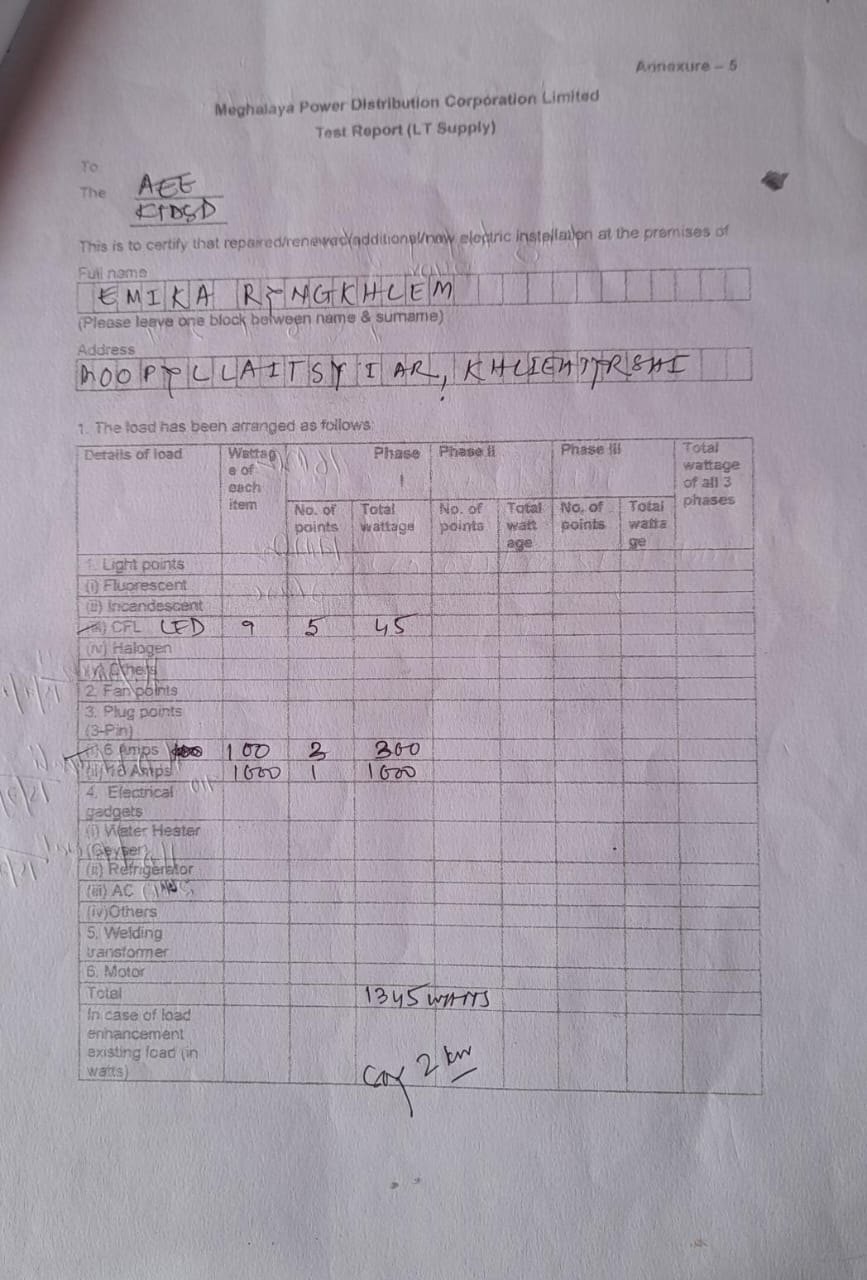 Annexure - 5
Meghalaya Power Distribution Corporation Limited
Test Report (LT Supply)
To
The AEE
KTDSD
This is to certify that repaired/renewed/additional/new electric installation at the premises of
Full name
EMIKA RYNGKHLEM
(Please leave one block between name & surname)
Address
MOOPYLLAITSYIAR, KHLIEHTYRSHI
1. The load has been arranged as follows:
Details of load Wattag e of each item Phase I Phase II Phase III Total wattage of all 3 phases
No. of points Total wattage No. of points Total watt age No. of points Total watta ge
1. Light points
(i) Fluorescent
(ii) Incandescent
(iii) CFL LED 9 5 45
(iv) Halogen
(v) Others
2. Fan points
3. Plug points
(3-Pin)
(i) 6 Amps 100 3 300
(ii) Amps 1000 1 1000
4. Electrical
gadgets
(i) Water Heater
(Geyser)
(ii) Refrigerator
(iii) AC
(iv) Others
5. Welding
transformer
6. Motor
Total 1345 WATTS
In case of load
enhancement
existing load (in
watts)
2 kw